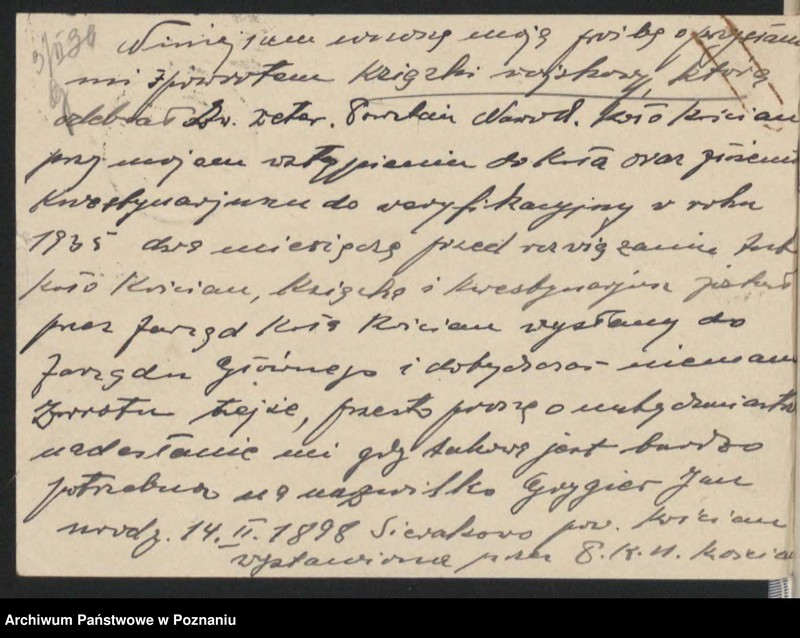 3/II 36
Niniejszem wnoszę moją prośbę o przysłanie
mi zpowrotem książki wojskowej, którą
odebrał Zw. Weter. Powstań Narod. Koło Kościan
przy mojem wstąpieniu do Koła oraz złożeniu
kwestynarjuszu do weryfikacyjny w roku
1935 dwa miesiącę przed rozwiązaniu
Koło Kościan, książka i kwestynarjusz
przez Zarząd Koła Kościan wysłany do
Zarządu Głównego i dobychczas niemam
zwrotu tejże, przeto proszę o natychmiastowe
nadesłanie mi gdy takowa jest bardzo
potrzebna na nazwisko Grygier Jan
urodz. 14.II.1898 Sierakowo pow. Kościan
wystawiona przez P.K.U. Kościan
Archiwum Państwowe w Poznaniu